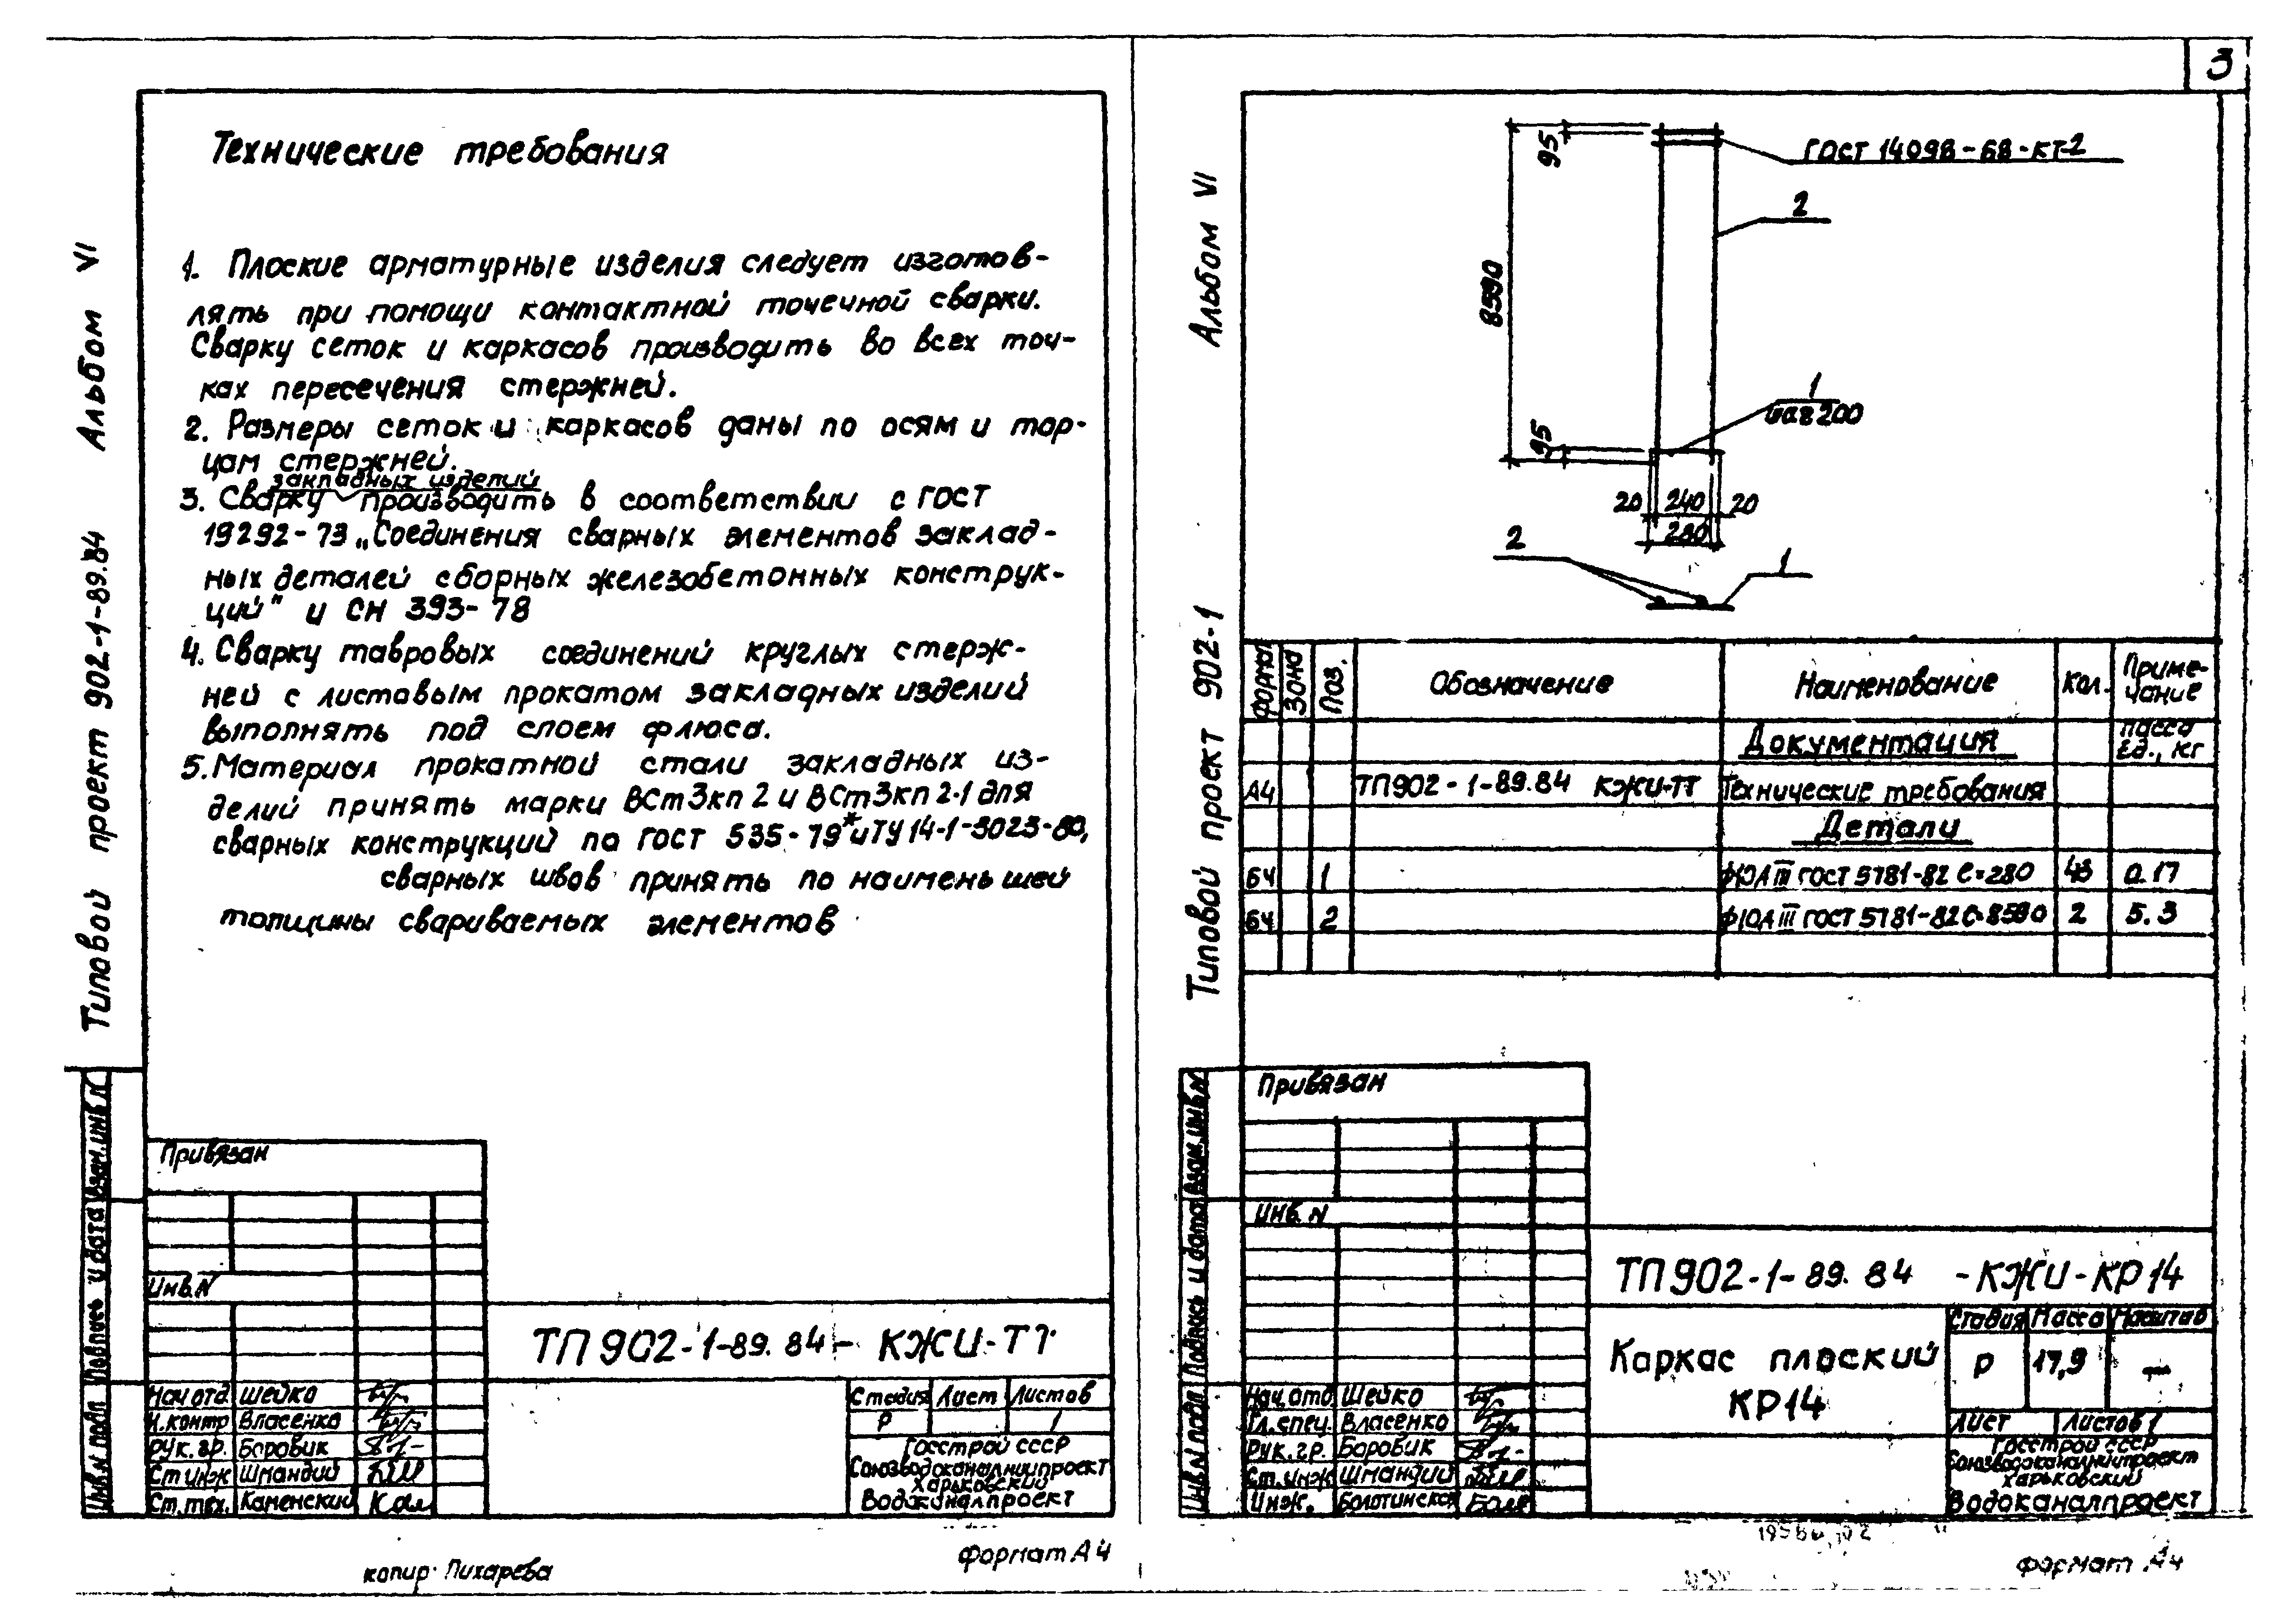 3
Технические требования
1. Плоские арматурные изделия следует изготов-
лять при помощи контактной точечной сварки.
Сварку сеток и каркасов производить во всех точ-
ках пересечения стержней.
2. Размеры сеток и каркасов даны по осям и тор-
цам стержней.
закладных изделий
3. Сварку производить в соответствии с ГОСТ
19292-73 „Соединения сварных элементов заклад-
ных деталей сборных железобетонных конструк-
ций" и СН 393-78
4. Сварку тавровых соединений круглых стерж-
ней с листовым прокатом закладных изделий
выполнять под слоем флюса.
5. Материал прокатной стали закладных из-
делий принять марки ВСт3кп2 и ВСт3кп2-1 для
сварных конструкций по ГОСТ 535-79* и ТУ 14-1-3023-80,
сварных швов принять по наименьшей
толщины свариваемых элементов
Альбом VI
Типовой проект 902-1-89.84
Взам.инв.N
Подпись и дата
Инв.N подл
Привязан
Инв.N
ТП 902-1-89.84 - КЖИ-ТТ
Нач отд Шейко
Н.контр Власенко
Рук.гр. Боровик
Ст инж Шмандий
Ст.тех. Каменский
Стадия Лист Листов
Р 1
Госстрой СССР
Союзводоканалниипроект
Харьковский
Водоканалпроект
копир. Пихарева
Формат А4
Альбом VI
Типовой проект 902-1
95
ГОСТ 14098-68-КТ-2
2
8590
1
шаг 200
95
20 240 20
280
2
1
Формат Зона Поз. Обозначение Наименование Кол. Приме-
чание
Документация масса
ед., кг
А4 ТП902-1-89.84 КЖИ-ТТ Технические требования
Детали
БЧ 1 ф10АIII ГОСТ 5781-82 ℓ=280 43 0.17
БЧ 2 ф10АIII ГОСТ 5781-82 ℓ=8590 2 5.3
Взам.инв.N
Подпись и дата
Инв.N подл
Привязан
Инв. N
ТП902-1-89.84 -КЖИ-КР14
Каркас плоский
КР14
Стадия Масса Масштаб
Р 17,9 —
Лист Листов 1
Нач.отд Шейко
Гл.спец. Власенко
Рук.гр. Боровик
Ст.инж Шмандий
Инж.
Госстрой СССР
Союзводоканалниипроект
Харьковский
Водоканалпроект
Формат А4